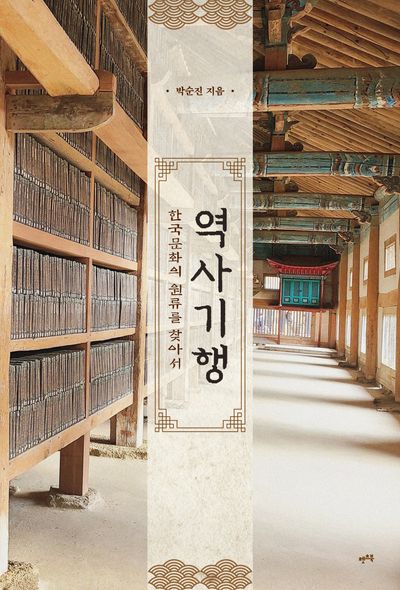 • 박순진 지음 •
역사기행
한국문화의 원류를 찾아서